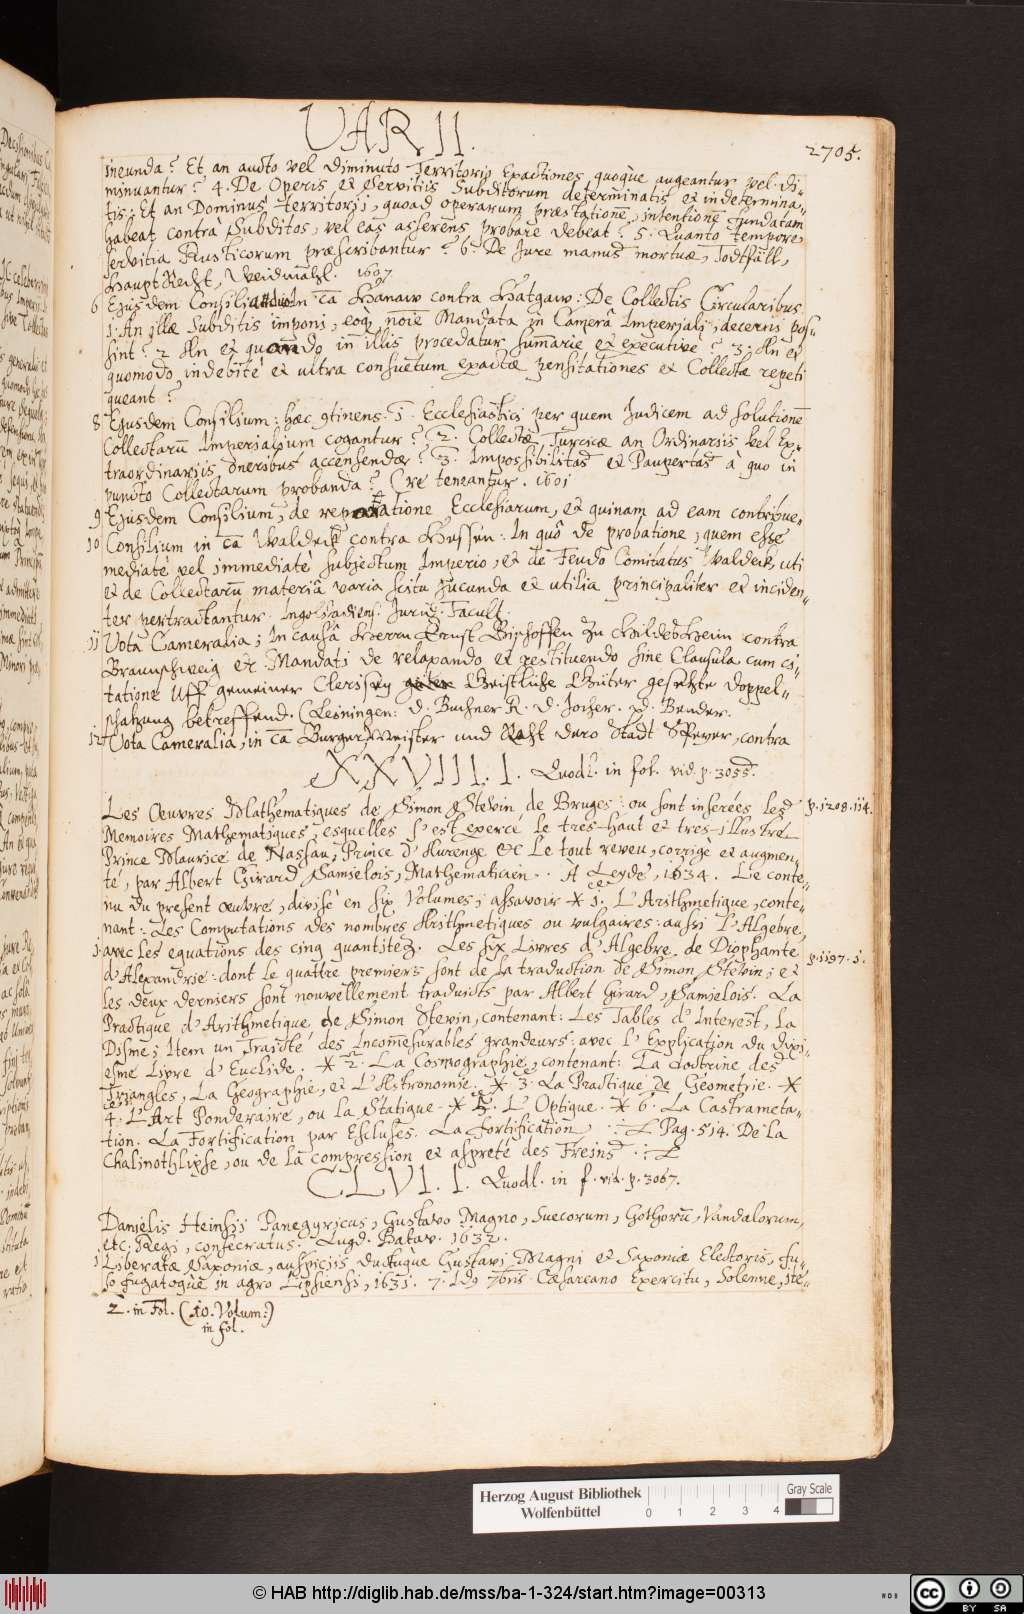 VARII.
2705.
ineunda? Et an aucto vel diminuto Territorio Exactiones quoque augeantur vel di-
minuantur? 4. De Operis et Servitiis Subditorum determinatis et indetermina-
tis: Et an Dominus territorij, quoad operarum præstationē, intentionē fundatam
habeat contra Subditos, vel eas asserens probare debeat? 5. Quanto tempore
servitia Rusticorum præscribantur? 6. De Jure manus mortuæ, Todtfäll,
HauptRecht, Weidmahl. 1607
6 Ejusdem Consilium in câ Hanaw contra Hatgaw: De Collectis Circularibus
1. An illæ Subditis imponi, eoq; noīe Mandata in Camerâ Imperiali, decerni pos-
sint? 2 An et quando in illis procedatur summarie et executivè? 3. An et
quomodo indebitè et ultra consuetum exactæ pensitationes et Collectæ repeti
queant?
8 Ejusdem Consilium: hæc 9tinens. 1. Ecclesiastici per quem Judicem ad solutionē
Collectarū Imperialium cogantur? 2. Collectæ Turcicæ an Ordinariis vel Ex-
traordinariis oneribus accensendæ? 3. Impossibilitas et Paupertas à quo in
puncto Collectarum probanda? 1601
9 Ejusdem Consilium, de reparatione Ecclesiarum, et quinam ad eam contribue-
10 Consilium in câ Waldeck contra Hessen: In quô de probatione, quem esse
mediatè vel immediatè subjectum Imperio, et de Feudo Comitatus Waldeck, uti
et de Collectarū materiâ varia scitu jucunda et utilia principaliter et inciden-
ter pertractantur. Ingolstadiens. Jurid. Facult.
11 Vota Cameralia; In causâ Herrn Ernst Bischoffen zu Hildesheim contra
Braunschweig etc. Mandati de relaxando et restituendo sine Clausula cum ci-
tatione Uff gemeiner Clerisey Geistliche Güter gesetzte doppel-
schatzung betreffend. (Leiningen: D. Buchner R. D. Jocher. D. Bender.
12 Vota Cameralia, in câ BurgerMeister und Raht dero Stadt Speyer, contra
XXVIII. 1. Quodl. in fol. vid. p. 3055.
Les Œuvres Mathematiques de Simon Stevin de Bruges: ou sont inserées les p. 1208. 114.
Memoires Mathematiques, esquelles s'est exercé le tres-haut et tres-illustre
Prince Maurice de Nassau, Prince d'Aurenge &c Le tout reveu, corrigè et augmen-
té, par Albert Girard Samielois, Mathematicien. À Leyde, 1634. Le conte-
nu du present œuvre, divisè en six Volumes; assavoir * 1. L'Arithmetique, conte-
nant: Les Computations des nombres Arithmetiques ou vulgaires: aussi l'Algebre,
1. avec les equations des cinq quantitéz. Les six Livres d'Algebre de Diophante p. 1197. 1.
d'Alexandrie: dont le quattre premiers sont de la traduction de Simon Stevin; et
les deux derniers sont nouvellement traducts par Albert Girard, Samielois. La
Practique d'Arithmetique de Simon Stevin, contenant: Les Tables d'Interest, La
Disme; Item un Traicté des Incom̄esurables grandeurs: avec l'Explication du Dixi-
esme Livre d'Euclide. * 2. La Cosmographie, contenant: La doctrine des
Triangles, La Geographie, et L'Astronomie. * 3. La Practique de Geometrie. *
4. L'Art Ponderaire, ou la Statique. * 5. L'Optique. * 6. La Castrameta-
tion. La Fortification par Escluses. La fortification Pag. 514. De la
Chalinothlipse, ou de la compression et aspreté des Freins.
CLVI. 1. Quodl. in f. vid. p. 3067.
Danielis Heinsij Panegyricus, Gustavo Magno, Suecorum, Gothorū, Vandalorum,
etc. Regi, consecratus. Lugd. Batav. 1632.
1 Liberatæ Saxoniæ, auspiciis ductuque Gustavi Magni et Saxoniæ Electoris, fu-
so fugatoque in agro Lipsiensi, 1631. 7. Id9 7bris Cæsareano Exercitu, Solenne, ite-
2. in Fol. (10. Volum:)
in fol.
Herzog August Bibliothek
Wolfenbüttel
0 1 2 3 4
Gray Scale
© HAB http://diglib.hab.de/mss/ba-1-324/start.htm?image=00313
cc BY SA